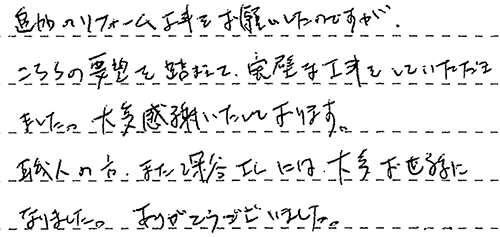 追加のリフォーム工事をお願いしたのですが、
こちらの要望を踏まえて、完璧な工事をしていただき
ました。大変感謝いたしております。
職人の方、また深谷さんには、大変お世話に
なりました。ありがとうございました。